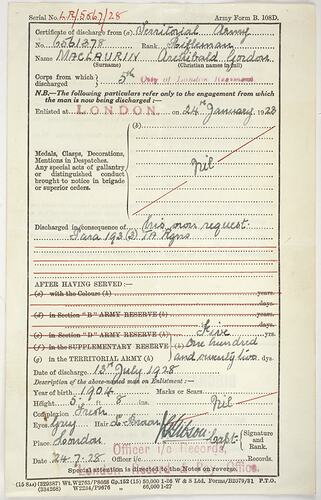 Serial No. LR/5567/28 Army Form B. 108D.
Certificate of discharge from (a) Territorial Army
No. 6561378 Rank Rifleman
Name MACLAURIN Archibald Gordon
(Surname) (Christian names in full)
Corps from which } 5th City of London Regiment
discharged
N.B.—The following particulars refer only to the engagement from which
the man is now being discharged:—
Enlisted at LONDON. on 24th January, 1923
(b)
Medals, Clasps, Decorations,
Mentions in Despatches.
Any special acts of gallantry
or distinguished conduct
brought to notice in brigade
or superior orders.
Nil
Discharged in consequence of his own request
Para 193 (3) TA Regns
AFTER HAVING SERVED:—
(c) with the Colours (h) years.
days.
(d) in Section "B" ARMY RESERVE (h) years.
days.
(e) in Section "D" ARMY RESERVE (h) Five years.
(f) in the SUPPLEMENTARY RESERVE (h) One hundred
(g) in the TERRITORIAL ARMY (h) and seventy two days.
Date of discharge 13th July 1928
Description of the above-named man on Enlistment:—
Year of birth 1904 Marks or Scars
Height 5 ft. 8 ins. Nil
Complexion Fresh
Eyes Grey Hair L. Brown
Capt. } Signature and Rank.
Place London. Officer i/c Records,
Date 24.7.28 Officer i/c Records.
Special attention is directed to the Notes on reverse.
P.T.O.